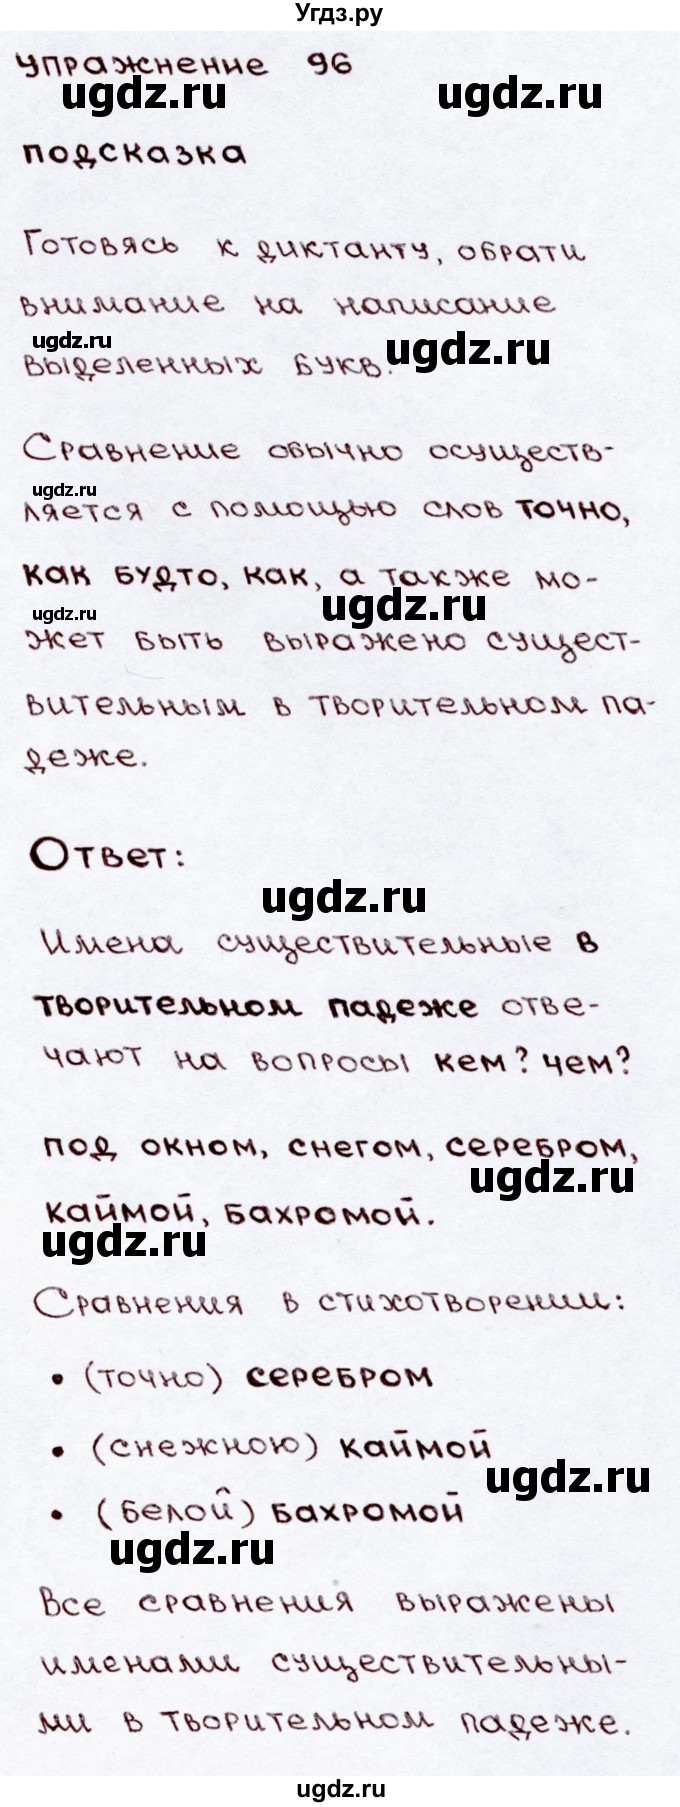 Угдз.ру
Упражнение 96
ugdz.ru ugdz.ru
подсказка
Готовясь к диктанту, обрати
внимание на написание
ugdz.ru ugdz.ru
выделенных букв.
Сравнение обычно осуществ-
ugdz.ru
ляется с помощью слов точно,
как будто, как, а также мо-
ugdz.ru ugdz.ru
жет быть выражено сущест-
вительным в творительном па-
деже.
Ответ:
ugdz.ru
Имена существительные в
творительном падеже отве-
чают на вопросы кем? чем?
под окном, снегом, серебром,
ugdz.ru
каймой, бахромой.
ugdz.ru
Сравнения в стихотворении:
• (точно) серебром
• (снежною) каймой
ugdz.ru
• (белой) бахромой
ugdz.ru
Все сравнения выражены
именами существительны-
ми в творительном падеже.
ugdz.ru